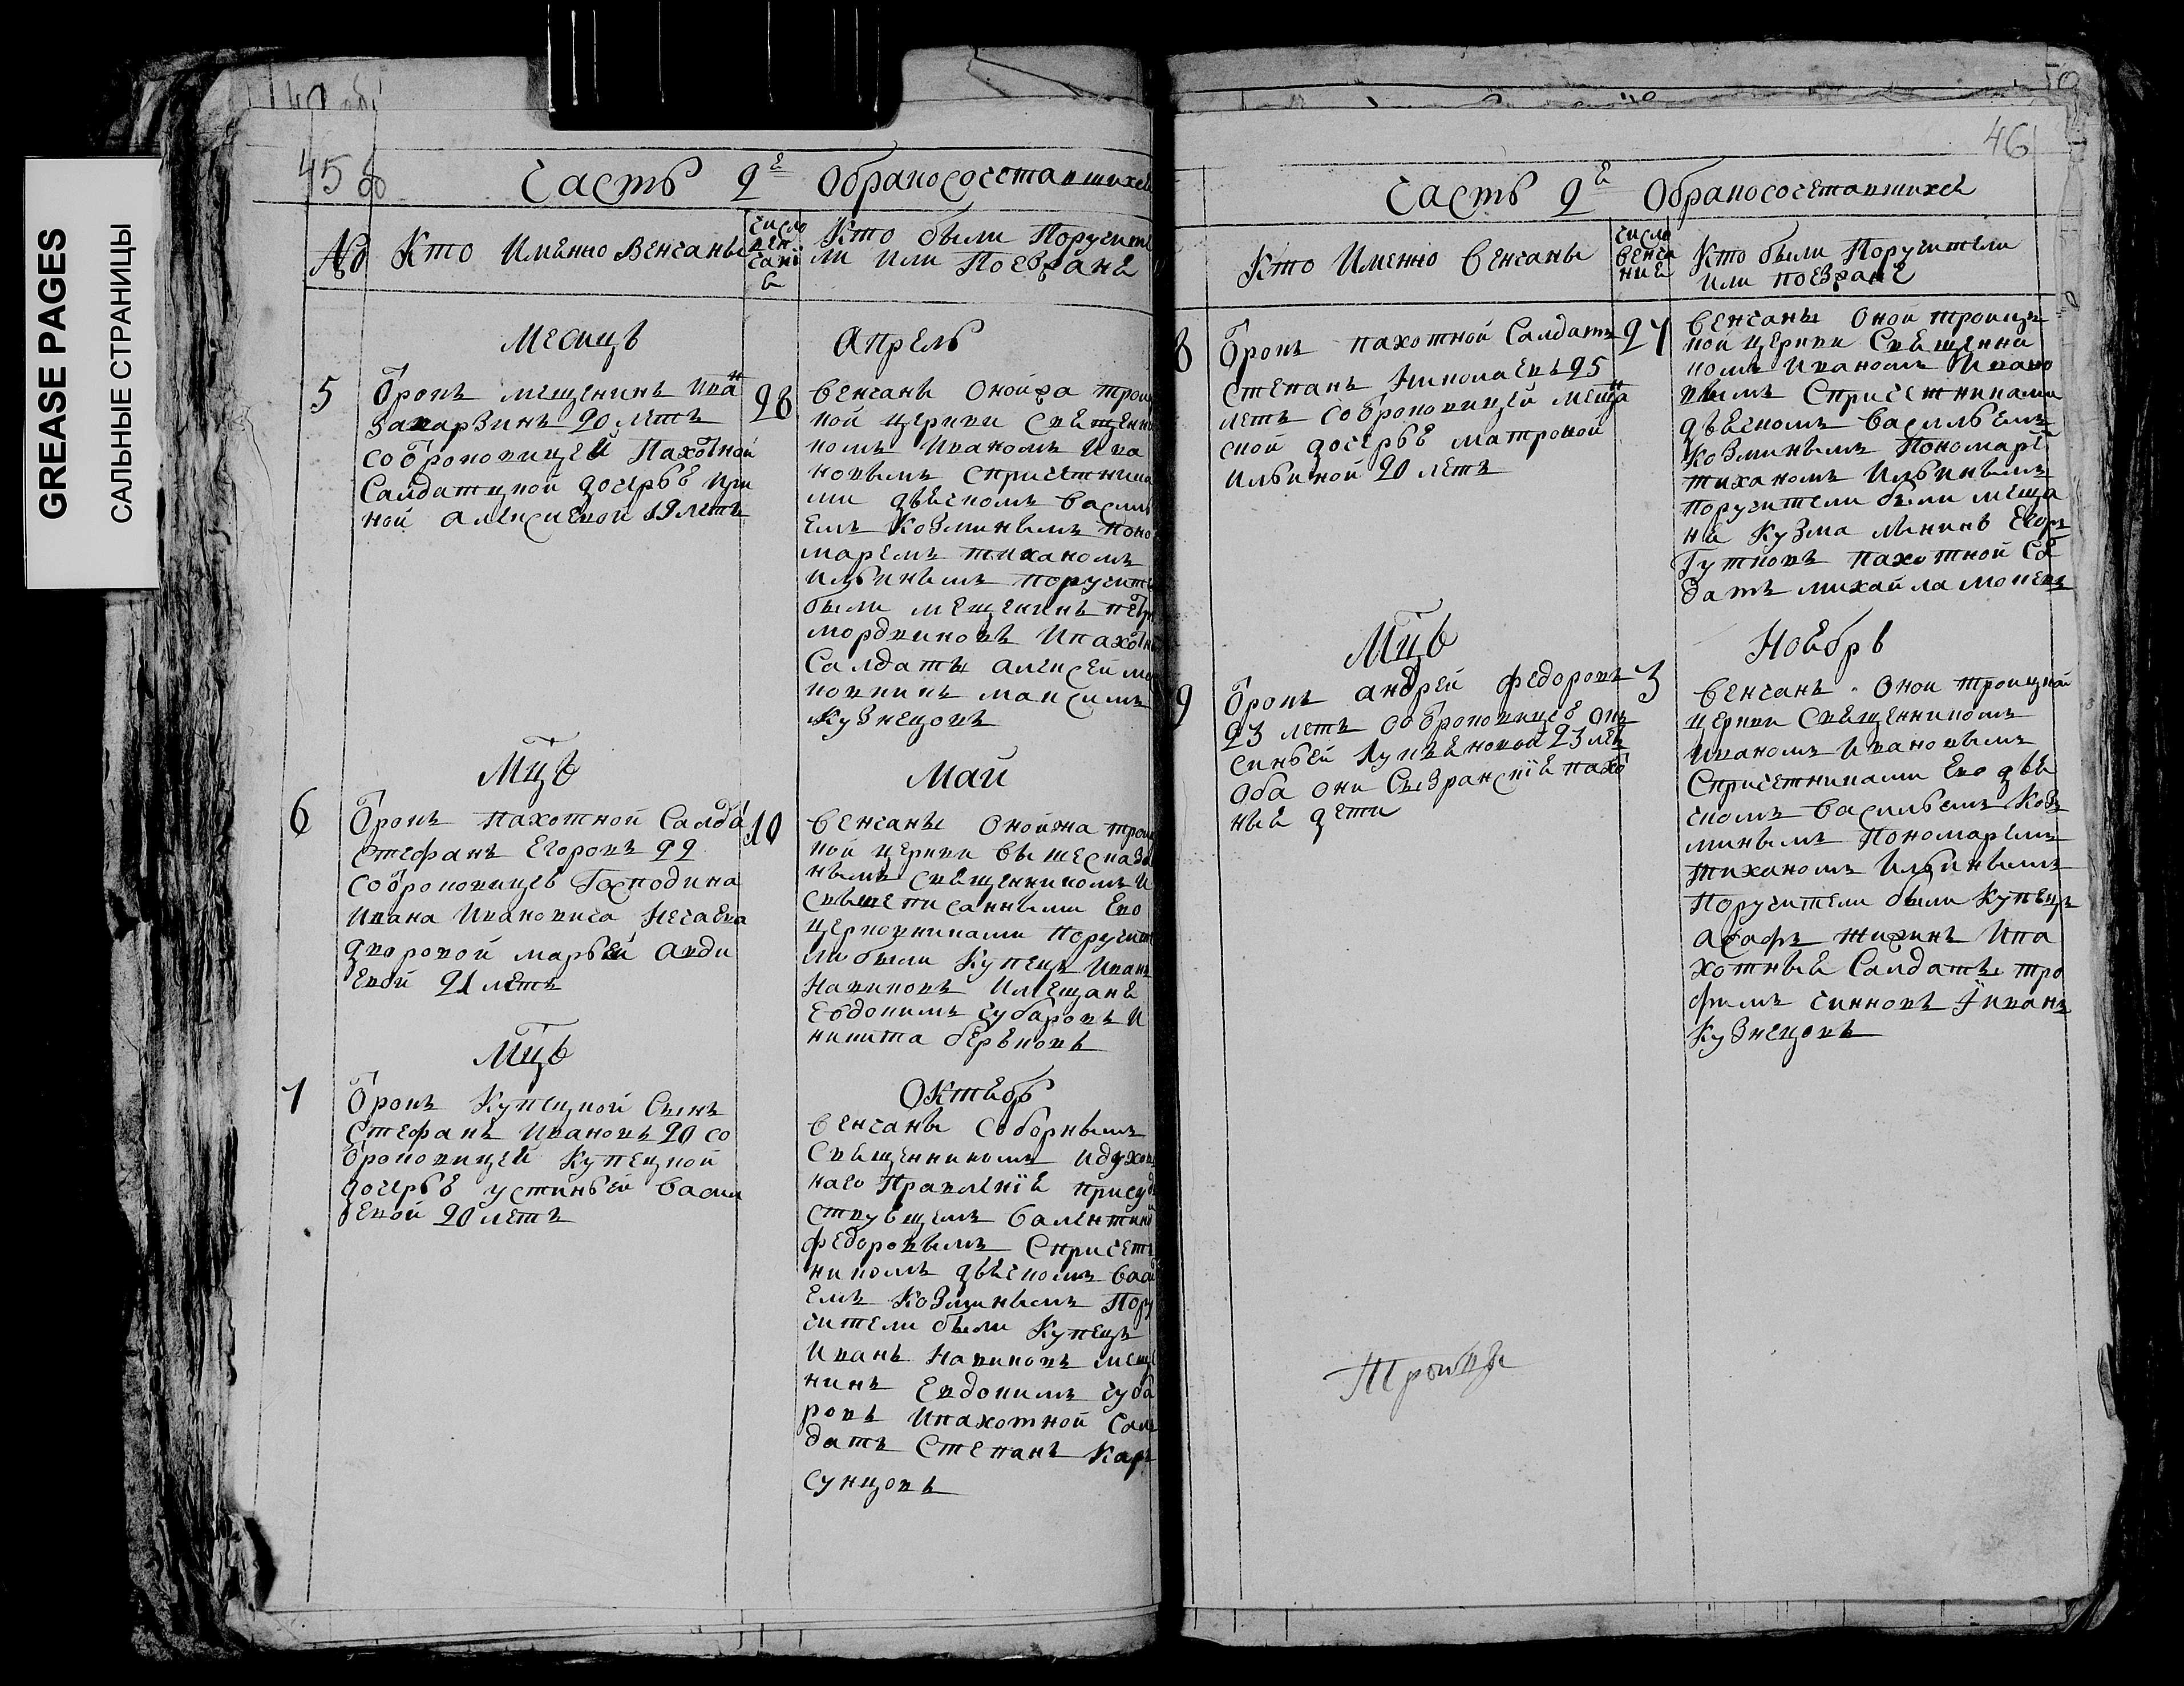 GREASE PAGES
САЛЬНЫЕ СТРАНИЦЫ
45 об
Часть 2я
О бракосочетавшихся
№
Кто Именно Венчаны
число
вен
чани
е
Кто были Поручите
ли или Поезжане
Месяцъ
Апрель
5
Отрокъ мещенинъ Иванъ
Захарзинъ 20 летъ
сотроковицей Пахотной
Салдатцкой дочерье Ири
ной Алексиевой 19 летъ
28
венчаны Онойжа троиц
кой церкви Священни
комъ Иваномъ Ива
новымъ спричетника
ми дьячкомъ василь
емъ Козминымъ поно
маремъ тиханомъ
Ильинымъ поручите
были мещенинъ петр
мордвиновъ Ипахотны
Салдаты алексей ма
максимъ
Кузнецовъ
Мцъ
Май
6
Отрокъ пахотной Салда
Стефанъ Егоровъ 22
сотроковицеь Господина
Ивана Ивановича Нечаева
дворовой марьей авди
евой 21 летъ
10
венчаны Онойжа трои
кой церкви вышесказа
нымъ священникомъ И
свышеписанными Ево
церковниками Поручите
ли были Купецъ Иванъ
Навиковъ Имещане
Евдокимъ чубаровъ И
никита
Мцъ
Октебр
7
Отрокъ Купецкой Сынъ
Стефанъ Ивановъ 20 со
троковицей Купецкой
дочерье устиньей васил
евой 20 летъ
венчаны соборнымъ
Священникомъ Идухов
наго Правления присуд
ствуещемъ валентино
федоровымъ Спричет
никомъ дьячкомъ васи
емъ Козминымъ Пору
чители были Купецъ
Иванъ Навиковъ меще
нинъ Евдокимъ чуба
ровъ Ипахотной Сал
датъ Степанъ Кар
сунцовъ
46
Часть 2я
О бракосочетавшихся
Кто Именно венчаны
число
венча
ние
Кто были Поручители
или поезжане
8
Отрокъ пахотной Салдатъ
Степанъ Николаевъ 25
летъ сотроковицей меща
ской дочерье матроной
Ильиной 20 летъ
27
венчаны Оной троицк
кой церкви Священни
комъ Иваномъ Ивано
вымъ Спричетниками
дьячкомъ васильемъ
Козминымъ Пономаре
тиханомъ Ильинымъ
поручители были меща
не Кузма минин Егоръ
Гутковъ пахотной Са
датъ михайла
Мцъ
Ноебрь
9
Отрокъ андрей федоровъ
23 летъ сотроковицеь
синьей 23 ле
оба они Сызранские пахо
ные дети
3
венчанъ Оной троицкой
церкви Священникомъ
Иваномъ Ивановымъ
Спричетниками Ево дья
чкомъ васильемъ Коз
минымъ Пономаремъ
тиханомъ Ильинымъ
Поручители были Купецъ
Ипа
хотныя Салдаты тро
фимъ Ииванъ
Кузнецовъ